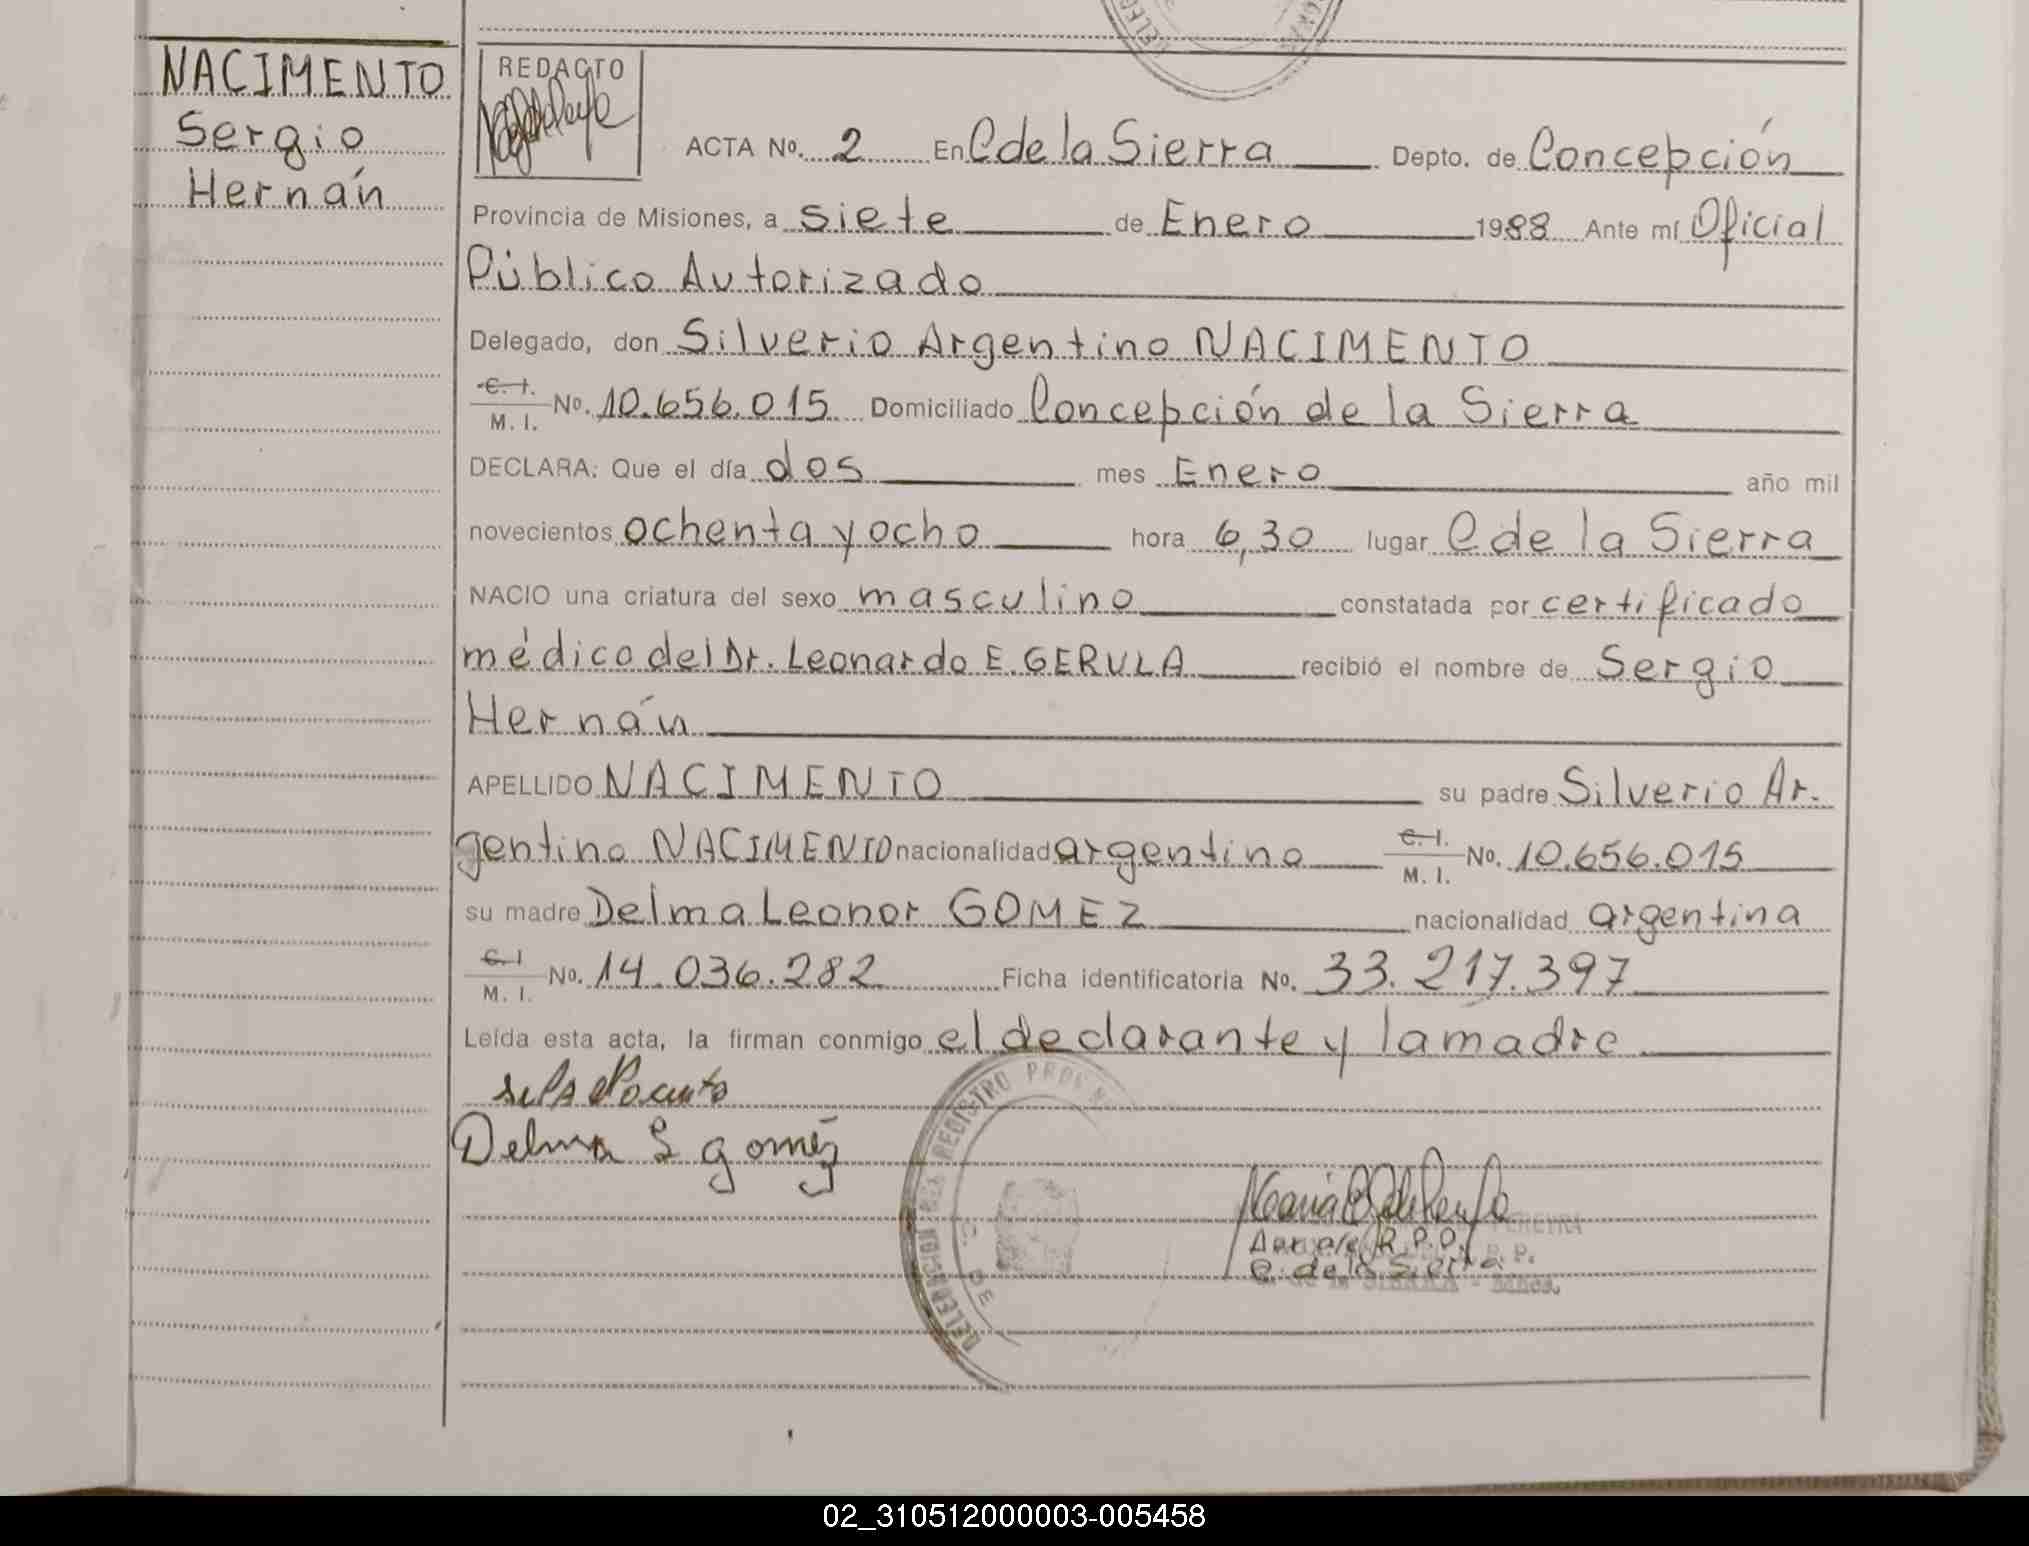 NACIMENTO
Sergio
Hernán
REDACTO
ACTA Nº. 2 En C de la Sierra Depto. de Concepción
Provincia de Misiones, a siete de Enero 1988 Ante mí Oficial
Público Autorizado
Delegado, don Silverio Argentino NACIMENTO
C. I.
M. I. Nº. 10.656.015 Domiciliado Concepción de la Sierra
DECLARA: Que el día dos mes Enero año mil
novecientos ochenta y ocho hora 6,30 lugar C de la Sierra
NACIO una criatura del sexo masculino constatada por certificado
médico del Dr. Leonardo E. GERULA recibió el nombre de Sergio
Hernán
APELLIDO NACIMENTO su padre Silverio Ar.
gentino NACIMENTO nacionalidad argentino C. I.
M. I. Nº. 10.656.015
su madre Delma Leonor GOMEZ nacionalidad argentina
C. I
M. I. Nº. 14.036.282 Ficha identificatoria Nº. 33.217.397
Leída esta acta, la firman conmigo el declarante y la madre
Delma L gomez
DELEGACION REGISTRO PROVIN
C. DE
PEREYRA
R. P. P.
C. de la Sierra
SIERRA - Mnes.
02_310512000003-005458